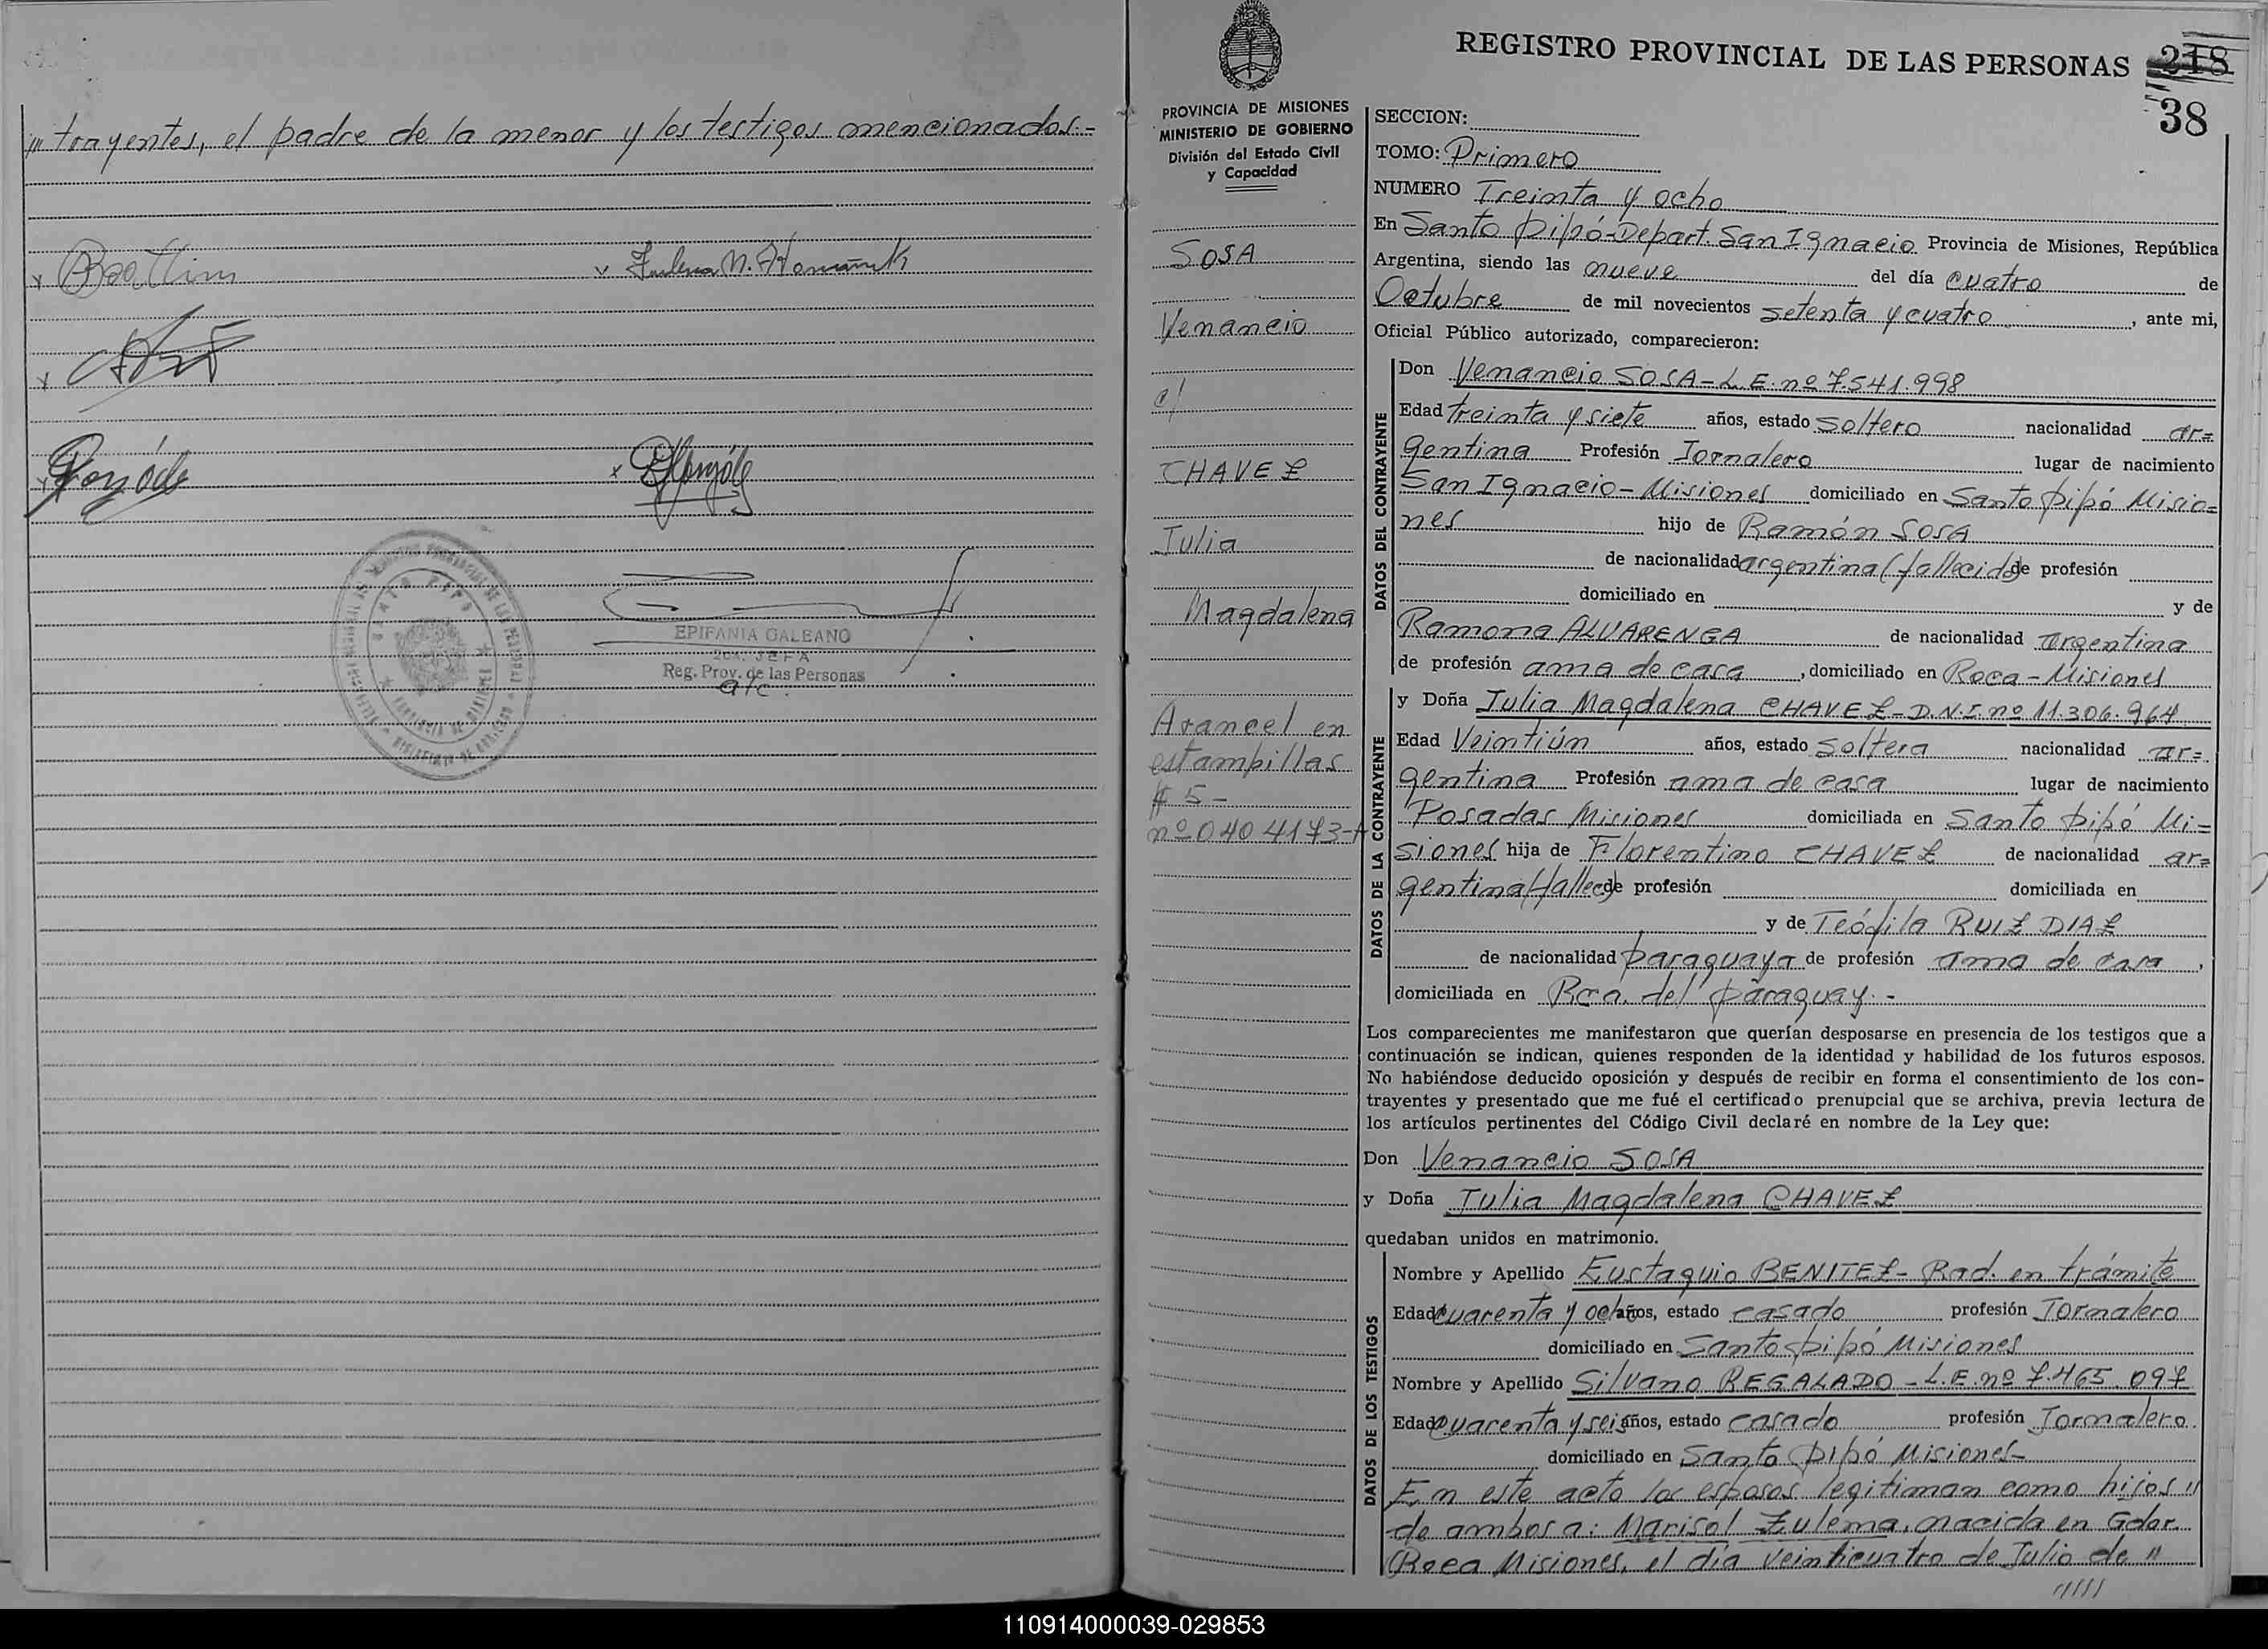 /// trayentes, el padre de la menor y los testigos mencionados.-
EPIFANIA GALEANO
JEFA
Reg. Prov. de las Personas
a/c.
REGISTRO PROVINCIAL DE LAS PERSONAS 218
38
PROVINCIA DE MISIONES
MINISTERIO DE GOBIERNO
División del Estado Civil
y Capacidad
SOSA
Venancio
c/
CHAVEZ
Julia
Magdalena
Arancel en
estampillas
$ 5-
nº 0404173-A
SECCION:
TOMO: Primero
NUMERO Treinta y ocho
En Santo Pipó-Depart. San Ignacio Provincia de Misiones, República
Argentina, siendo las nueve del día cuatro de
Octubre de mil novecientos setenta y cuatro, ante mi,
Oficial Público autorizado, comparecieron:
DATOS DEL CONTRAYENTE
Don Venancio SOSA-L.E. nº 7.541.998
Edad treinta y siete años, estado soltero nacionalidad ar=
gentina Profesión Jornalero lugar de nacimiento
San Ignacio-Misiones domiciliado en Santo Pipó Misio=
nes hijo de Ramón SOSA
de nacionalidad argentina (fallecido) de profesión
domiciliado en y de
Ramona ALVARENGA de nacionalidad argentina
de profesión ama de casa, domiciliado en Roca-Misiones
DATOS DE LA CONTRAYENTE
y Doña Julia Magdalena CHAVEZ-D.N.I. nº 11.306.964
Edad Veintiún años, estado soltera nacionalidad ar=
gentina Profesión ama de casa lugar de nacimiento
Posadas Misiones domiciliada en Santo Pipó Mi=
siones hija de Florentino CHAVEZ de nacionalidad ar=
gentina (fallec) de profesión domiciliada en
y de Teófila RUIZ DIAZ
de nacionalidad paraguaya de profesión ama de casa,
domiciliada en Rca. del Paraguay.-
Los comparecientes me manifestaron que querían desposarse en presencia de los testigos que a
continuación se indican, quienes responden de la identidad y habilidad de los futuros esposos.
No habiéndose deducido oposición y después de recibir en forma el consentimiento de los con-
trayentes y presentado que me fué el certificado prenupcial que se archiva, previa lectura de
los artículos pertinentes del Código Civil declaré en nombre de la Ley que:
Don Venancio SOSA
y Doña Julia Magdalena CHAVEZ
quedaban unidos en matrimonio.
DATOS DE LOS TESTIGOS
Nombre y Apellido Eustaquio BENITEZ-Rad. en trámite
Edad cuarenta y ocho años, estado casado profesión Jornalero
domiciliado en Santo Pipó Misiones
Nombre y Apellido Silvano REGALADO-L.E. nº 7.465.097
Edad cuarenta y seis años, estado casado profesión Jornalero.
domiciliado en Santo Pipó Misiones-
En este acto los esposos legitiman como hijos //
de ambos a: Marisol Zulema, nacida en Gdor.
Roca Misiones, el día veinticuatro de Julio de //
/////
110914000039-029853